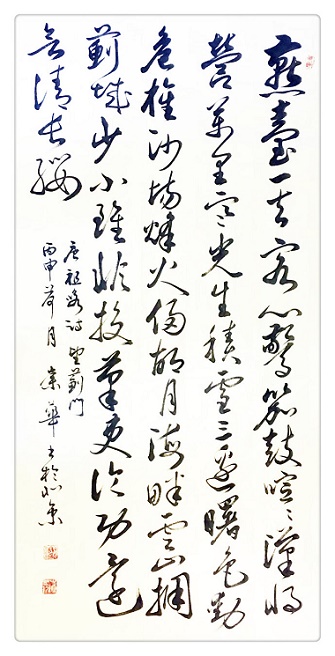 燕臺一去客心驚笳鼓喧〻漢將
營萬里寒光生積雪三邊曙色動
危旌沙場烽火侵胡月海畔雲山擁
薊城少小雖非投筆吏論功還
欲請長纓
唐祖詠詩望薊門
丙申荷月華書於北京